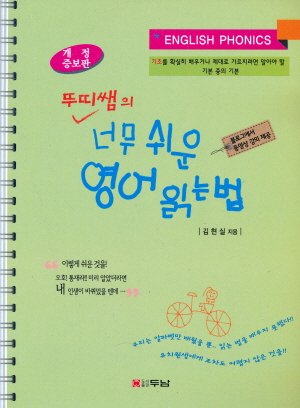 개정
증보판
ENGLISH PHONICS
기초를 확실히 배우거나 제대로 가르치려면 알아야 할
기본 중의 기본
뚜띠쌤의
너무 쉬운
영어 읽는 법
블로그에서
동영상 강의 제공
| 김현실 지음 |
이렇게 쉬운 것을!
오호! 통재라! 미리 알았더라면
내 인생이 바뀌었을 텐데 ···
우리는 알파벳만 배웠을 뿐... 읽는 법을 배우지 못했다!!
유치원생에게 조차도 어렵지 않은 것을!!
도서출판 두남